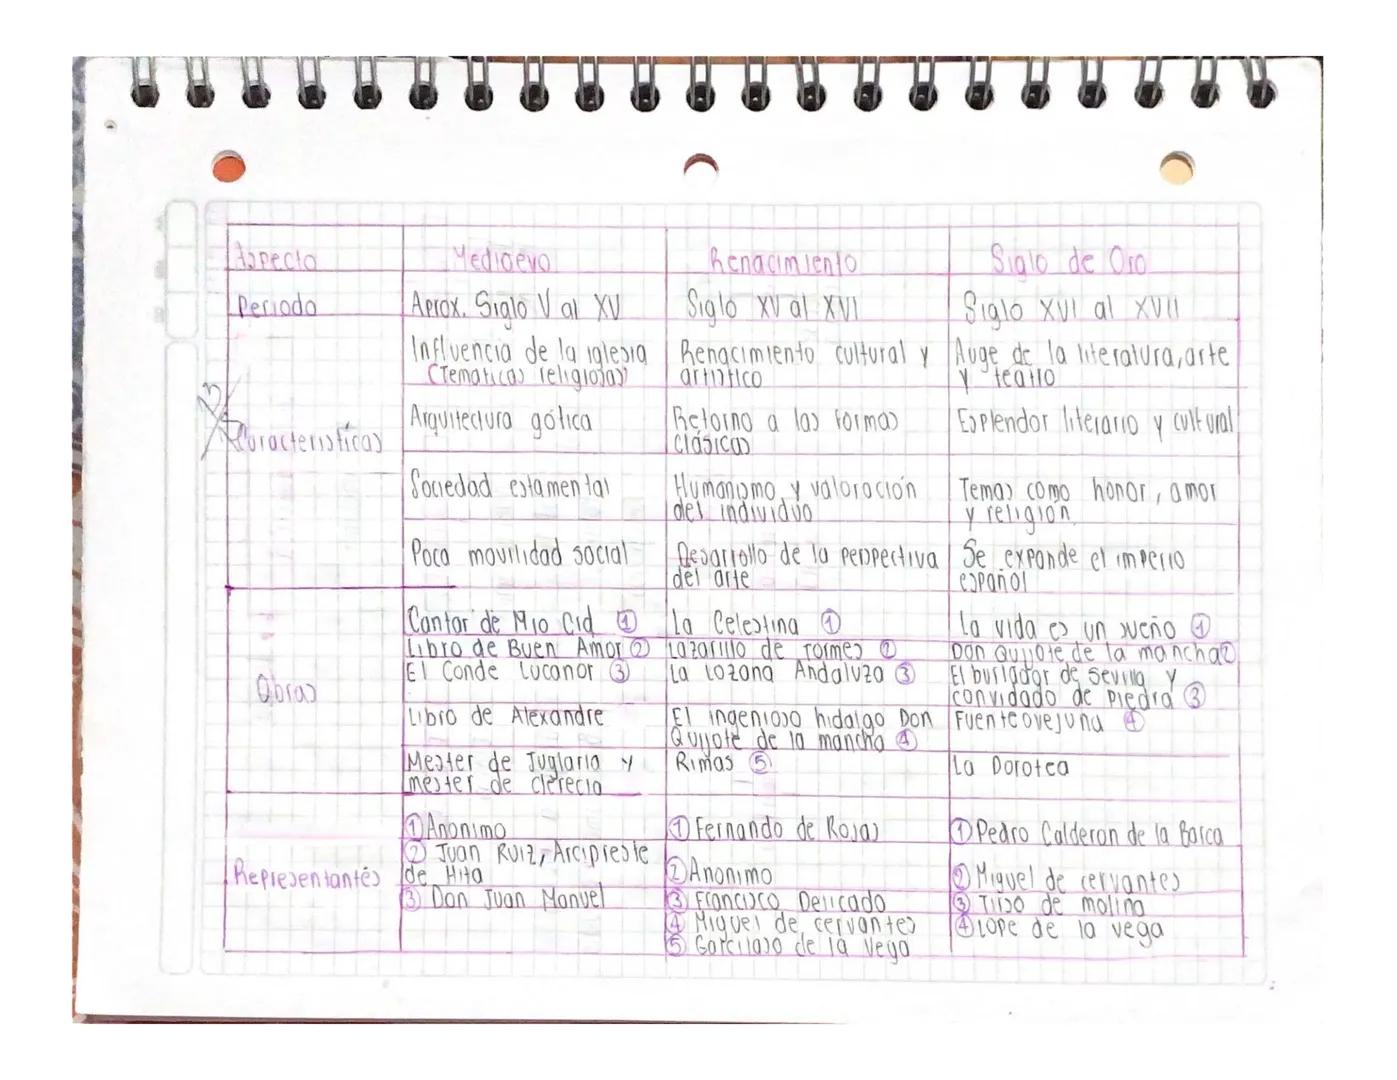 Aspecto Medioevo Renacimiento Siglo de Oro
Periodo Aprox. Siglo V al XV Siglo XV al XVI Siglo XVI al XVII
Características
Influencia de la iglesia Renacimiento cultural y Auge de la literatura, arte
(Tematicas religiosas) artístico y teatro
Arquitectura gótica Retorno a las formas Esplendor literario y cultural
clásicas
Sociedad estamental Humanismo y valoración Temas como honor, amor
del individuo y religión
Poca movilidad social Desarrollo de la perspectiva Se expande el imperio
del arte español
Obras
Cantar de Mio Cid ① La Celestina ① La vida es un sueño ①
Libro de Buen Amor ② Lazarillo de Tormes ② Don Quijote de la mancha ②
El Conde Lucanor ③ La Lozana Andaluza ③ El burlador de Sevilla y
convidado de piedra ③
Libro de Alexandre El ingenioso hidalgo Don Fuenteovejuna ④
Quijote de la mancha ④
Mester de Juglaria y Rimas ⑤ La Dorotea
mester de clerecia
Representantés
① Anonimo ① Fernando de Rojas ① Pedro Calderon de la Barca
② Juan Ruiz, Arcipreste
de Hita ② Anonimo ② Miguel de cervantes
③ Don Juan Manuel ③ Francisco Delicado ③ Tirso de molina
④ Miguel de cervantes ④ Lope de la vega
⑤ Garcilaso de la Vega